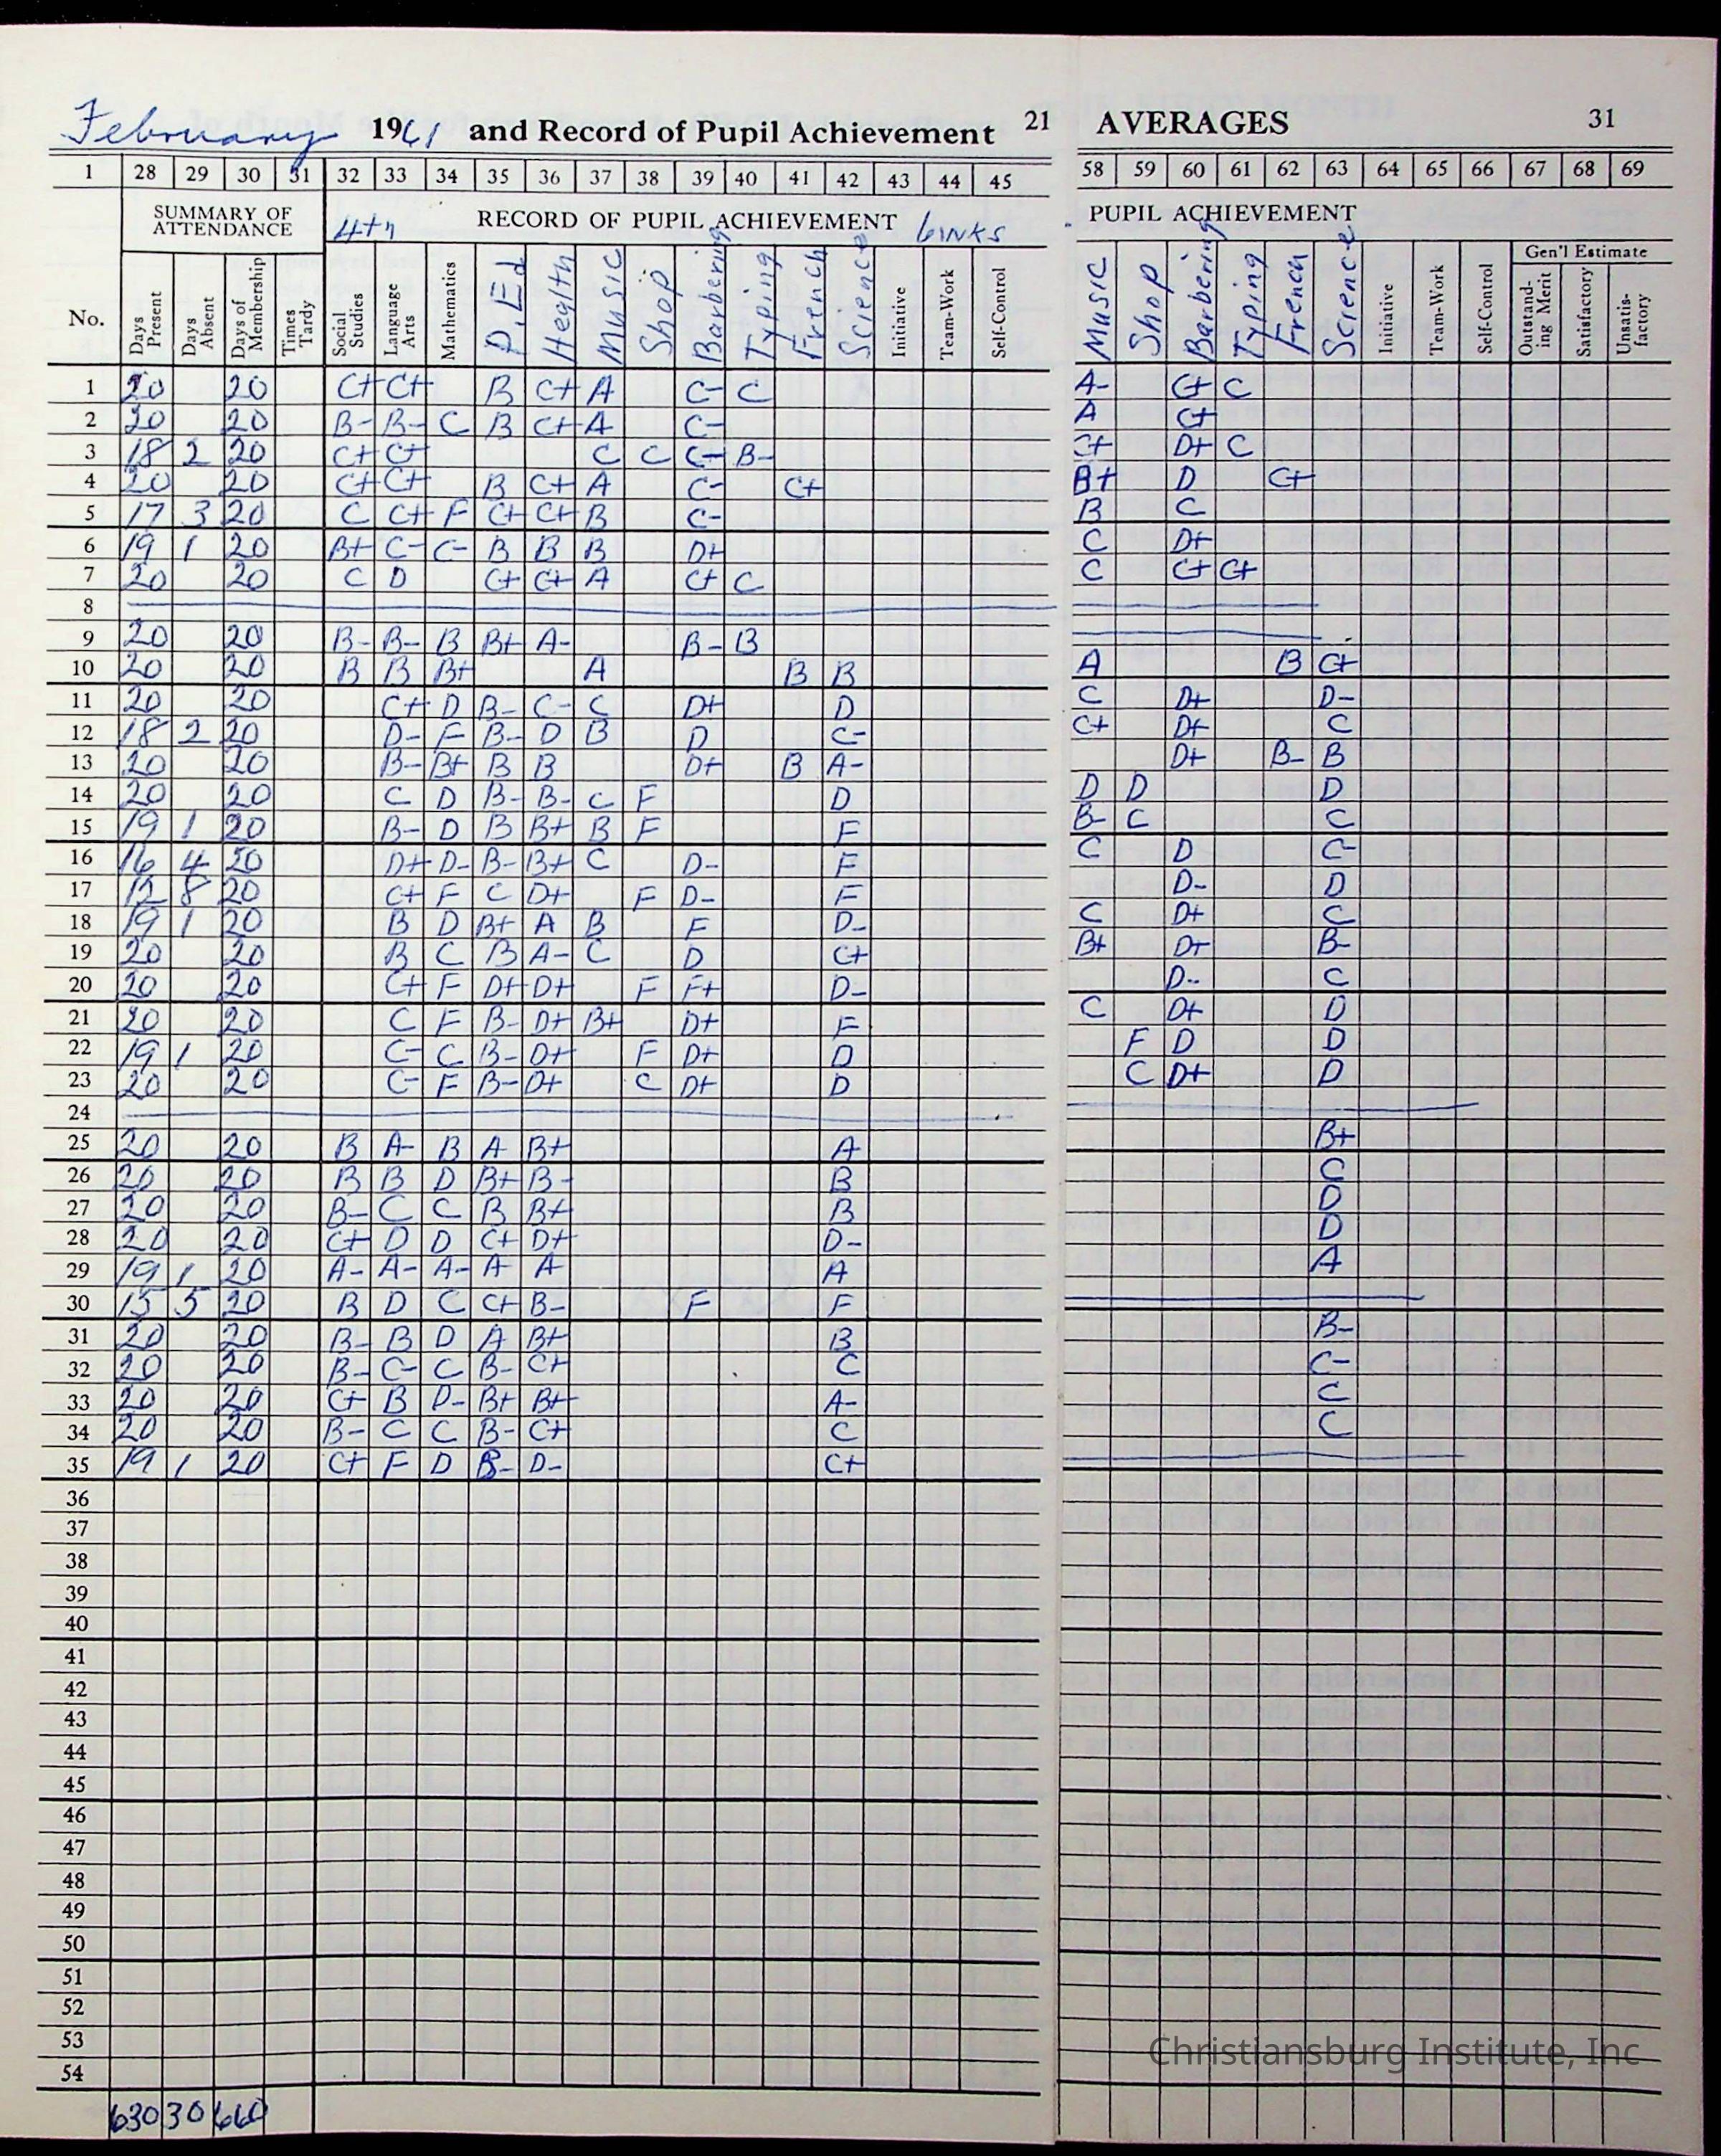 February 1961 and Record of Pupil Achievement 21
1 28 29 30 31 32 33 34 35 36 37 38 39 40 41 42 43 44 45
SUMMARY OF ATTENDANCE 4th RECORD OF PUPIL ACHIEVEMENT 6 WKS
No. Days Present Days Absent Days of Membership Times Tardy Social Studies Language Arts Mathematics P. Ed Health Music Shop Barbering Typing French Science Initiative Team-Work Self-Control
1 20 20 C+ C+ B C+ A C- C
2 20 20 B- B- C B C+ A C-
3 18 2 20 C+ C+ C C C+ B-
4 20 20 C+ C+ B C+ A C- C+
5 17 3 20 C C+ F C+ C+ B C-
6 19 1 20 B+ C- C- B B B D+
7 20 20 C D C+ C+ A C+ C
8
9 20 20 B- B- B B+ A- B- B
10 20 20 B B B+ A B B
11 20 20 C+ D B- C- C D+ D
12 18 2 20 D- F B- D B D C-
13 20 20 B- B+ B B D+ B A-
14 20 20 C D B- B- C F D
15 19 1 20 B- D B B+ B F F
16 16 4 20 D+ D- B- B+ C D- F
17 12 8 20 C+ F C D+ F D- F
18 19 1 20 B D B+ A B F D-
19 20 20 B C B A- C D C+
20 20 20 C+ F D+ D+ F F+ D-
21 20 20 C F B- D+ B+ D+ F
22 19 1 20 C- C B- D+ F D+ D
23 20 20 C- F B- D+ C D+ D
24
25 20 20 B A- B A B+ A
26 20 20 B B D B+ B- B
27 20 20 B- C C B B+ B
28 20 20 C+ D D C+ D+ D-
29 19 1 20 A- A- A- A A A
30 15 5 20 B D C C+ B- F F
31 20 20 B- B D A B+ B
32 20 20 B- C- C B- C+ C
33 20 20 C+ B D- B+ B+ A-
34 20 20 B- C C B- C+ C
35 19 1 20 C+ F D B- D- C+
36
37
38
39
40
41
42
43
44
45
46
47
48
49
50
51
52
53
54
630 30 660
AVERAGES 31
58 59 60 61 62 63 64 65 66 67 68 69
PUPIL ACHIEVEMENT
Gen'l Estimate
Music Shop Barbering Typing French Science Initiative Team-Work Self-Control Outstanding Merit Satisfactory Unsatisfactory
A- C+ C
A C+
C+ D+ C
B+ D C+
B C
C D+
C C+ C+
A B C+
C D+ D-
C+ D+ C
D+ B- B
D D D
B- C C
C D C-
D- D
C D+ C
B+ D+ B-
D- C
C D+ D
F D D
C D+ D
B+
C
D
D
A
B-
C-
C
C
Christiansburg Institute, Inc